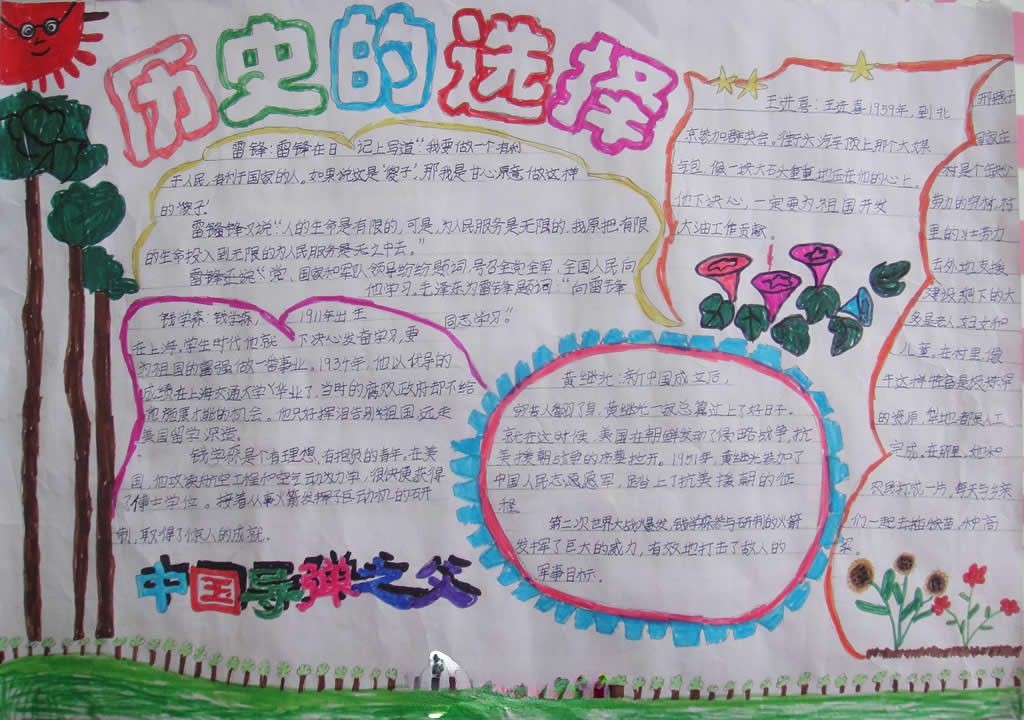 历史的选择
雷锋:雷锋在日 记上写道“我要做一个有利
于人民,有利于国家的人。如果说这是‘傻子’,那我是甘心愿意做这种
的‘傻子’.
雷锋锋又说“人的生命是有限的,可是,为人民服务是无限的.我原把有限
的生命投入到无限的为人民服务是无之中去。”
雷锋还说“党、国家和军队领导纷纷题词,号召全党全军、全国人民向
他学习。毛泽东为雷锋题词:“向雷锋
同志学习”。
钱学森:钱学森, 1911年出生
在上海。学生时代他就 下决心发奋学习,要
为祖国的富强做一番事业。1934年,他以优异的
成绩在上海交通大学毕业了,当时的腐败政府却不给
他施展才能的机会。他只好挥泪告别祖国,远走
美国留学深造。
钱学森是个有理想、有抱负的青年,在美
国,他攻读航空工程和空气动力学,很快便获得
了博士学位。接着从事火箭发动机的研
制,取得了惊人的成就.
中国导弹之父
王进喜:王进喜1959年,到北
京参加群英会。街大汽车顶上那个大煤
气包,像一块大石头重重地压在他的心上。
他下决心,一定要为祖国开发
大油工作贡献。
黄继光:新中国成立后,
穷苦人翻了身,黄继光一家总算过上了好日子。
就在这时候,美国在朝鲜发动了侵略战争,抗
美援朝战争的序幕拉开。1951年,黄继光参加了
中国人民志愿军,踏上了抗美援朝的征
程.
第二次世界大战爆发,钱学森参与研制的火箭
发挥了巨大的威力,有效地打击了敌人的
军事目标.
邢燕子
村是个缺少
劳力的穷村,村
里的壮劳力
去外地支援
建设,剩下的大
多是老人妇女和
儿童。在村里,像
的资原,华地都是人工
完成。在那里,她和
农民打成一片,每天与乡亲
们一起去插秧苗、种高
粱。